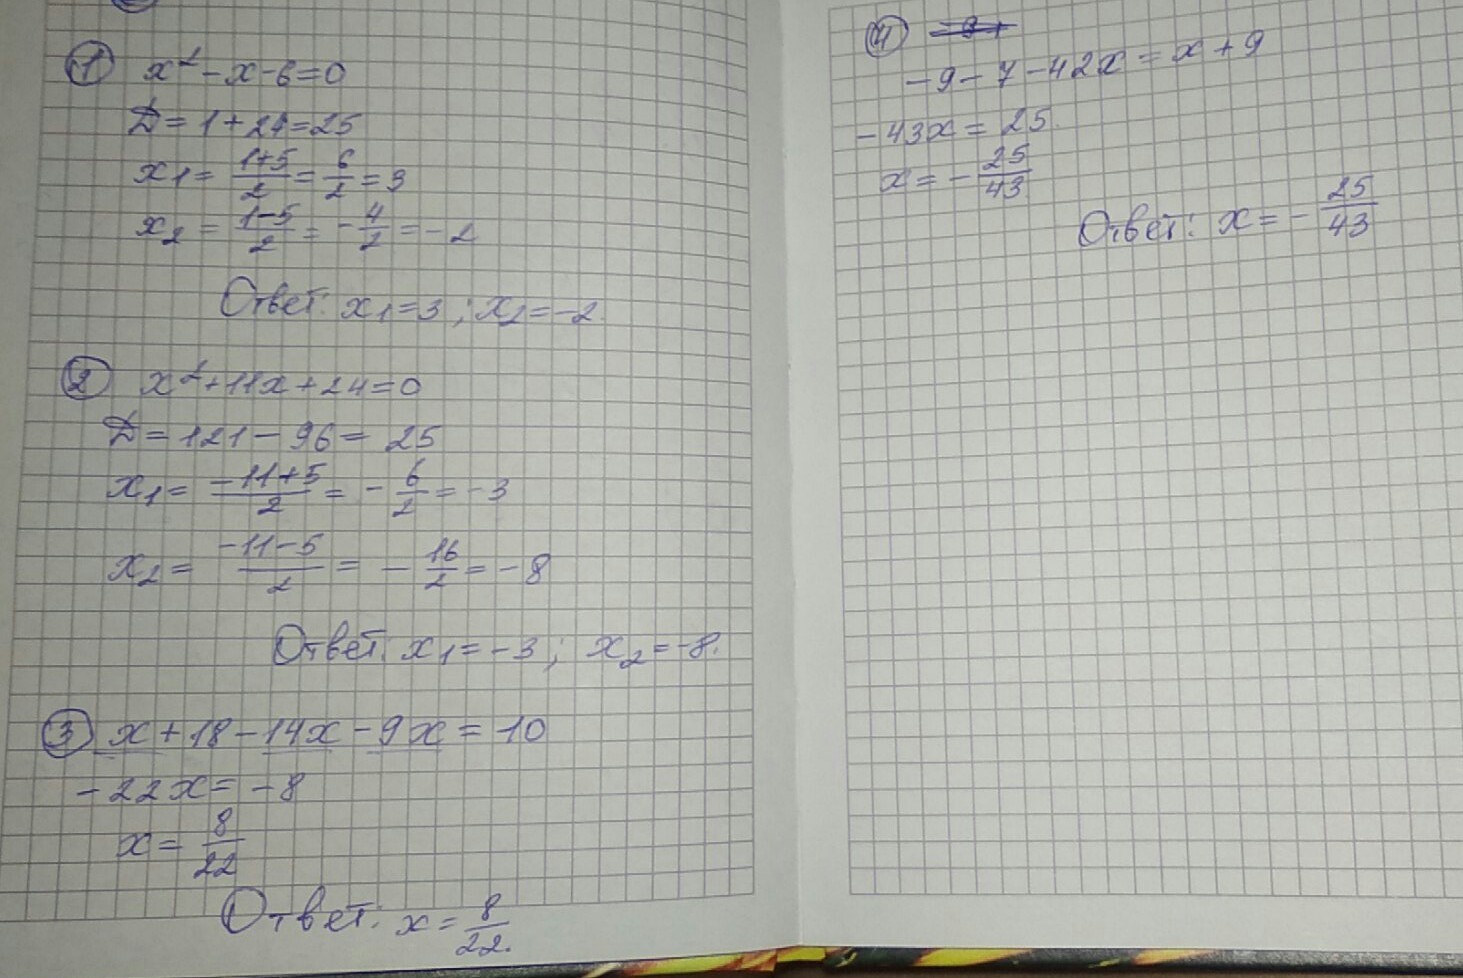 1 x² - x - 6 = 0
Д = 1 + 24 = 25
x₁ = (1+5)/2 = 6/2 = 3
x₂ = (1-5)/2 = -4/2 = -2
Ответ: x₁ = 3 ; x₂ = -2.
2 x² + 11x + 24 = 0
Д = 121 - 96 = 25
x₁ = (-11+5)/2 = -6/2 = -3
x₂ = (-11-5)/2 = -16/2 = -8
Ответ: x₁ = -3 ; x₂ = -8.
3 x + 18 - 14x - 9x = 10
-22x = -8
x = 8/22
Ответ: x = 8/22.
4
-9 - 7 - 42x = x + 9
-43x = 25.
x = -25/43
Ответ: x = -25/43